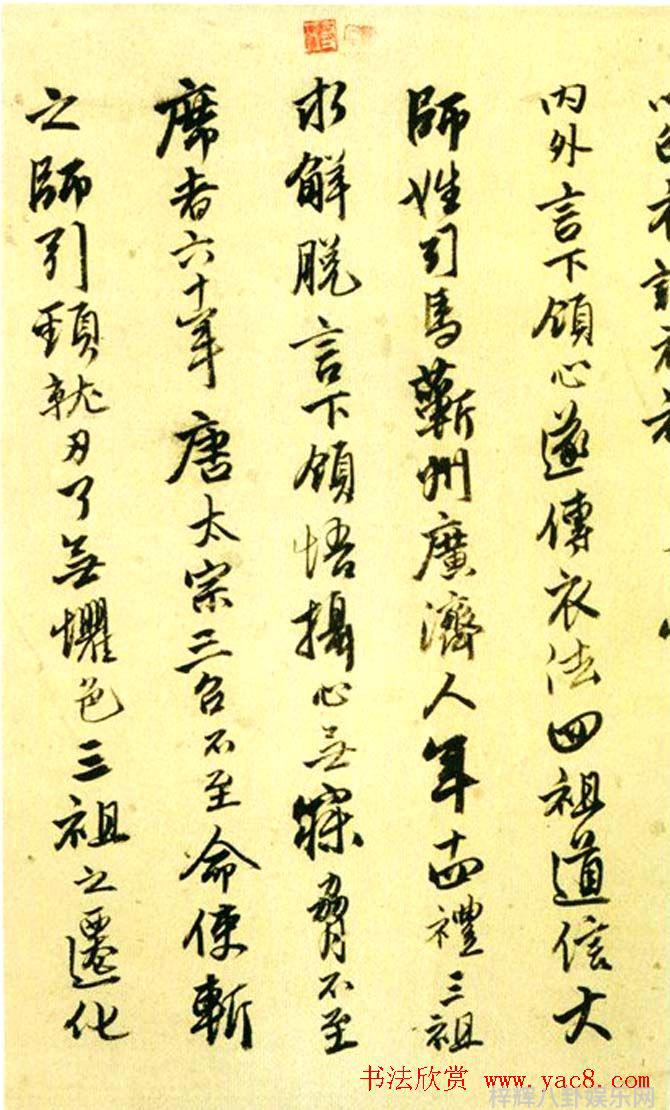 内外言下領心遂傳衣法四祖道信大
師姓司馬蘄州廣濟人年十四禮三祖
求解脱言下領悟攝心無寐脅不至
席者六十年唐太宗三召不至命使斬
之師引頸就刃了無懼色三祖之遷化
书法欣赏 www.yac8.com
梓辉八卦娱乐网